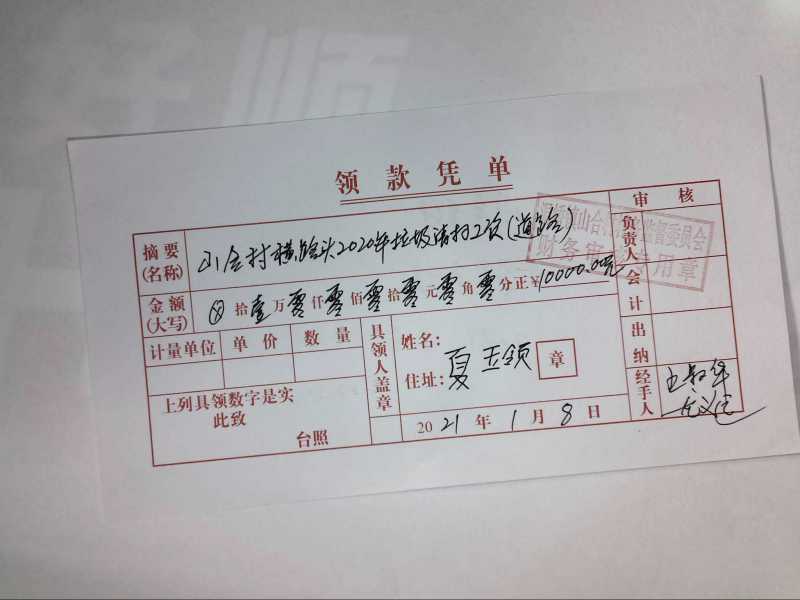 领款凭单
审核
摘要(名称) 山合村横 头2020年垃圾清扫工资(道路)
负责人
财务 专用章
金额(大写) ⊗拾壹万零仟零佰零拾零元零角零分正¥10000.00元
会计
计量单位 单价 数量
具领人盖章
姓名:
夏玉领
章
住址:
出纳
上列具领数字是实
此致
台照
2021年1月8日
经手人